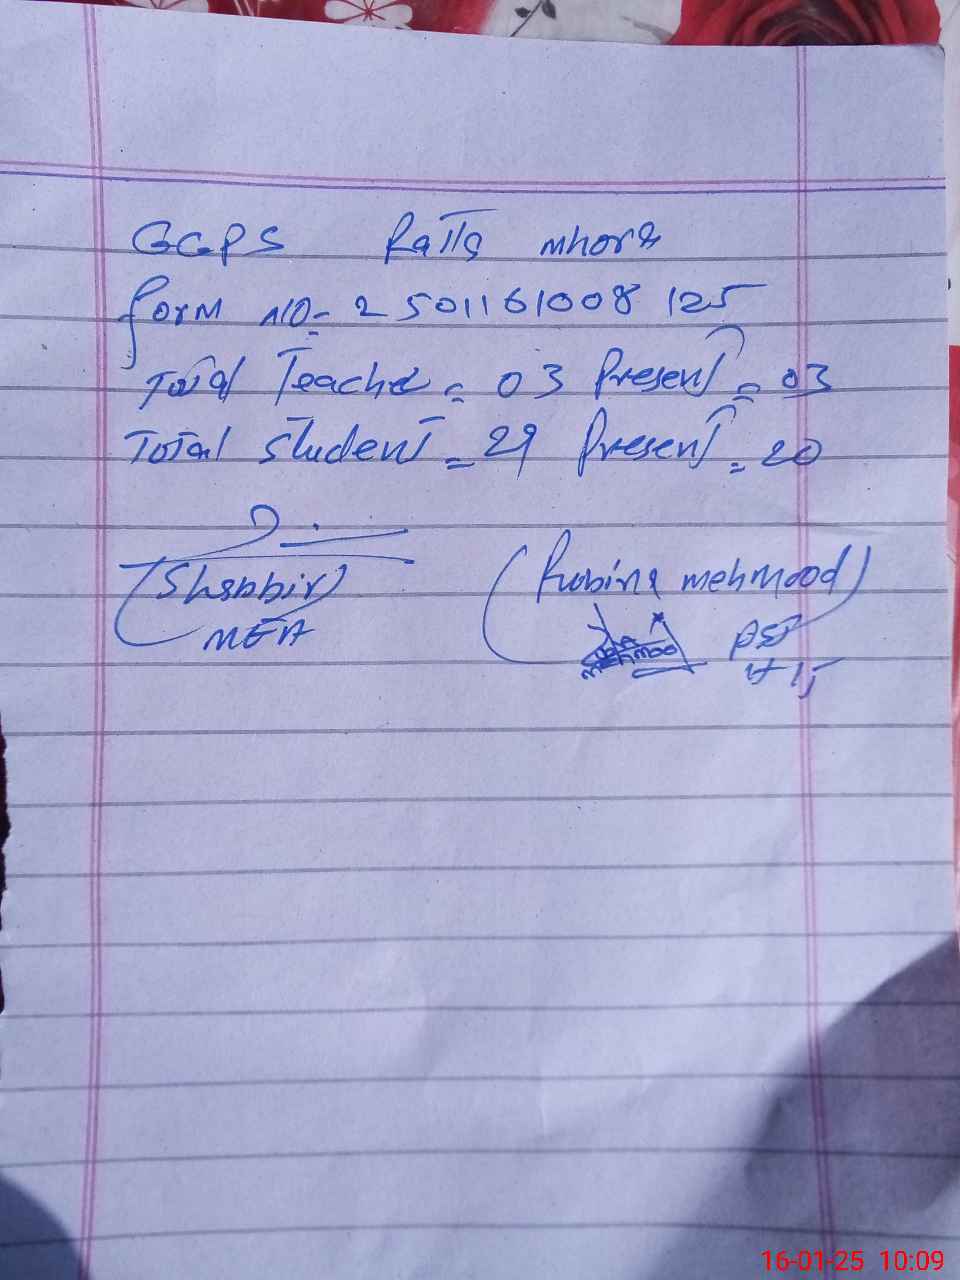 GGPS Ratta mhora
form NO = 2501161008125
Total Teacher = 03 Present = 03
Total Student = 29 Present = 20
(Shabbir) (Rubina mehmood)
MEA PST
16-01-25 10:09